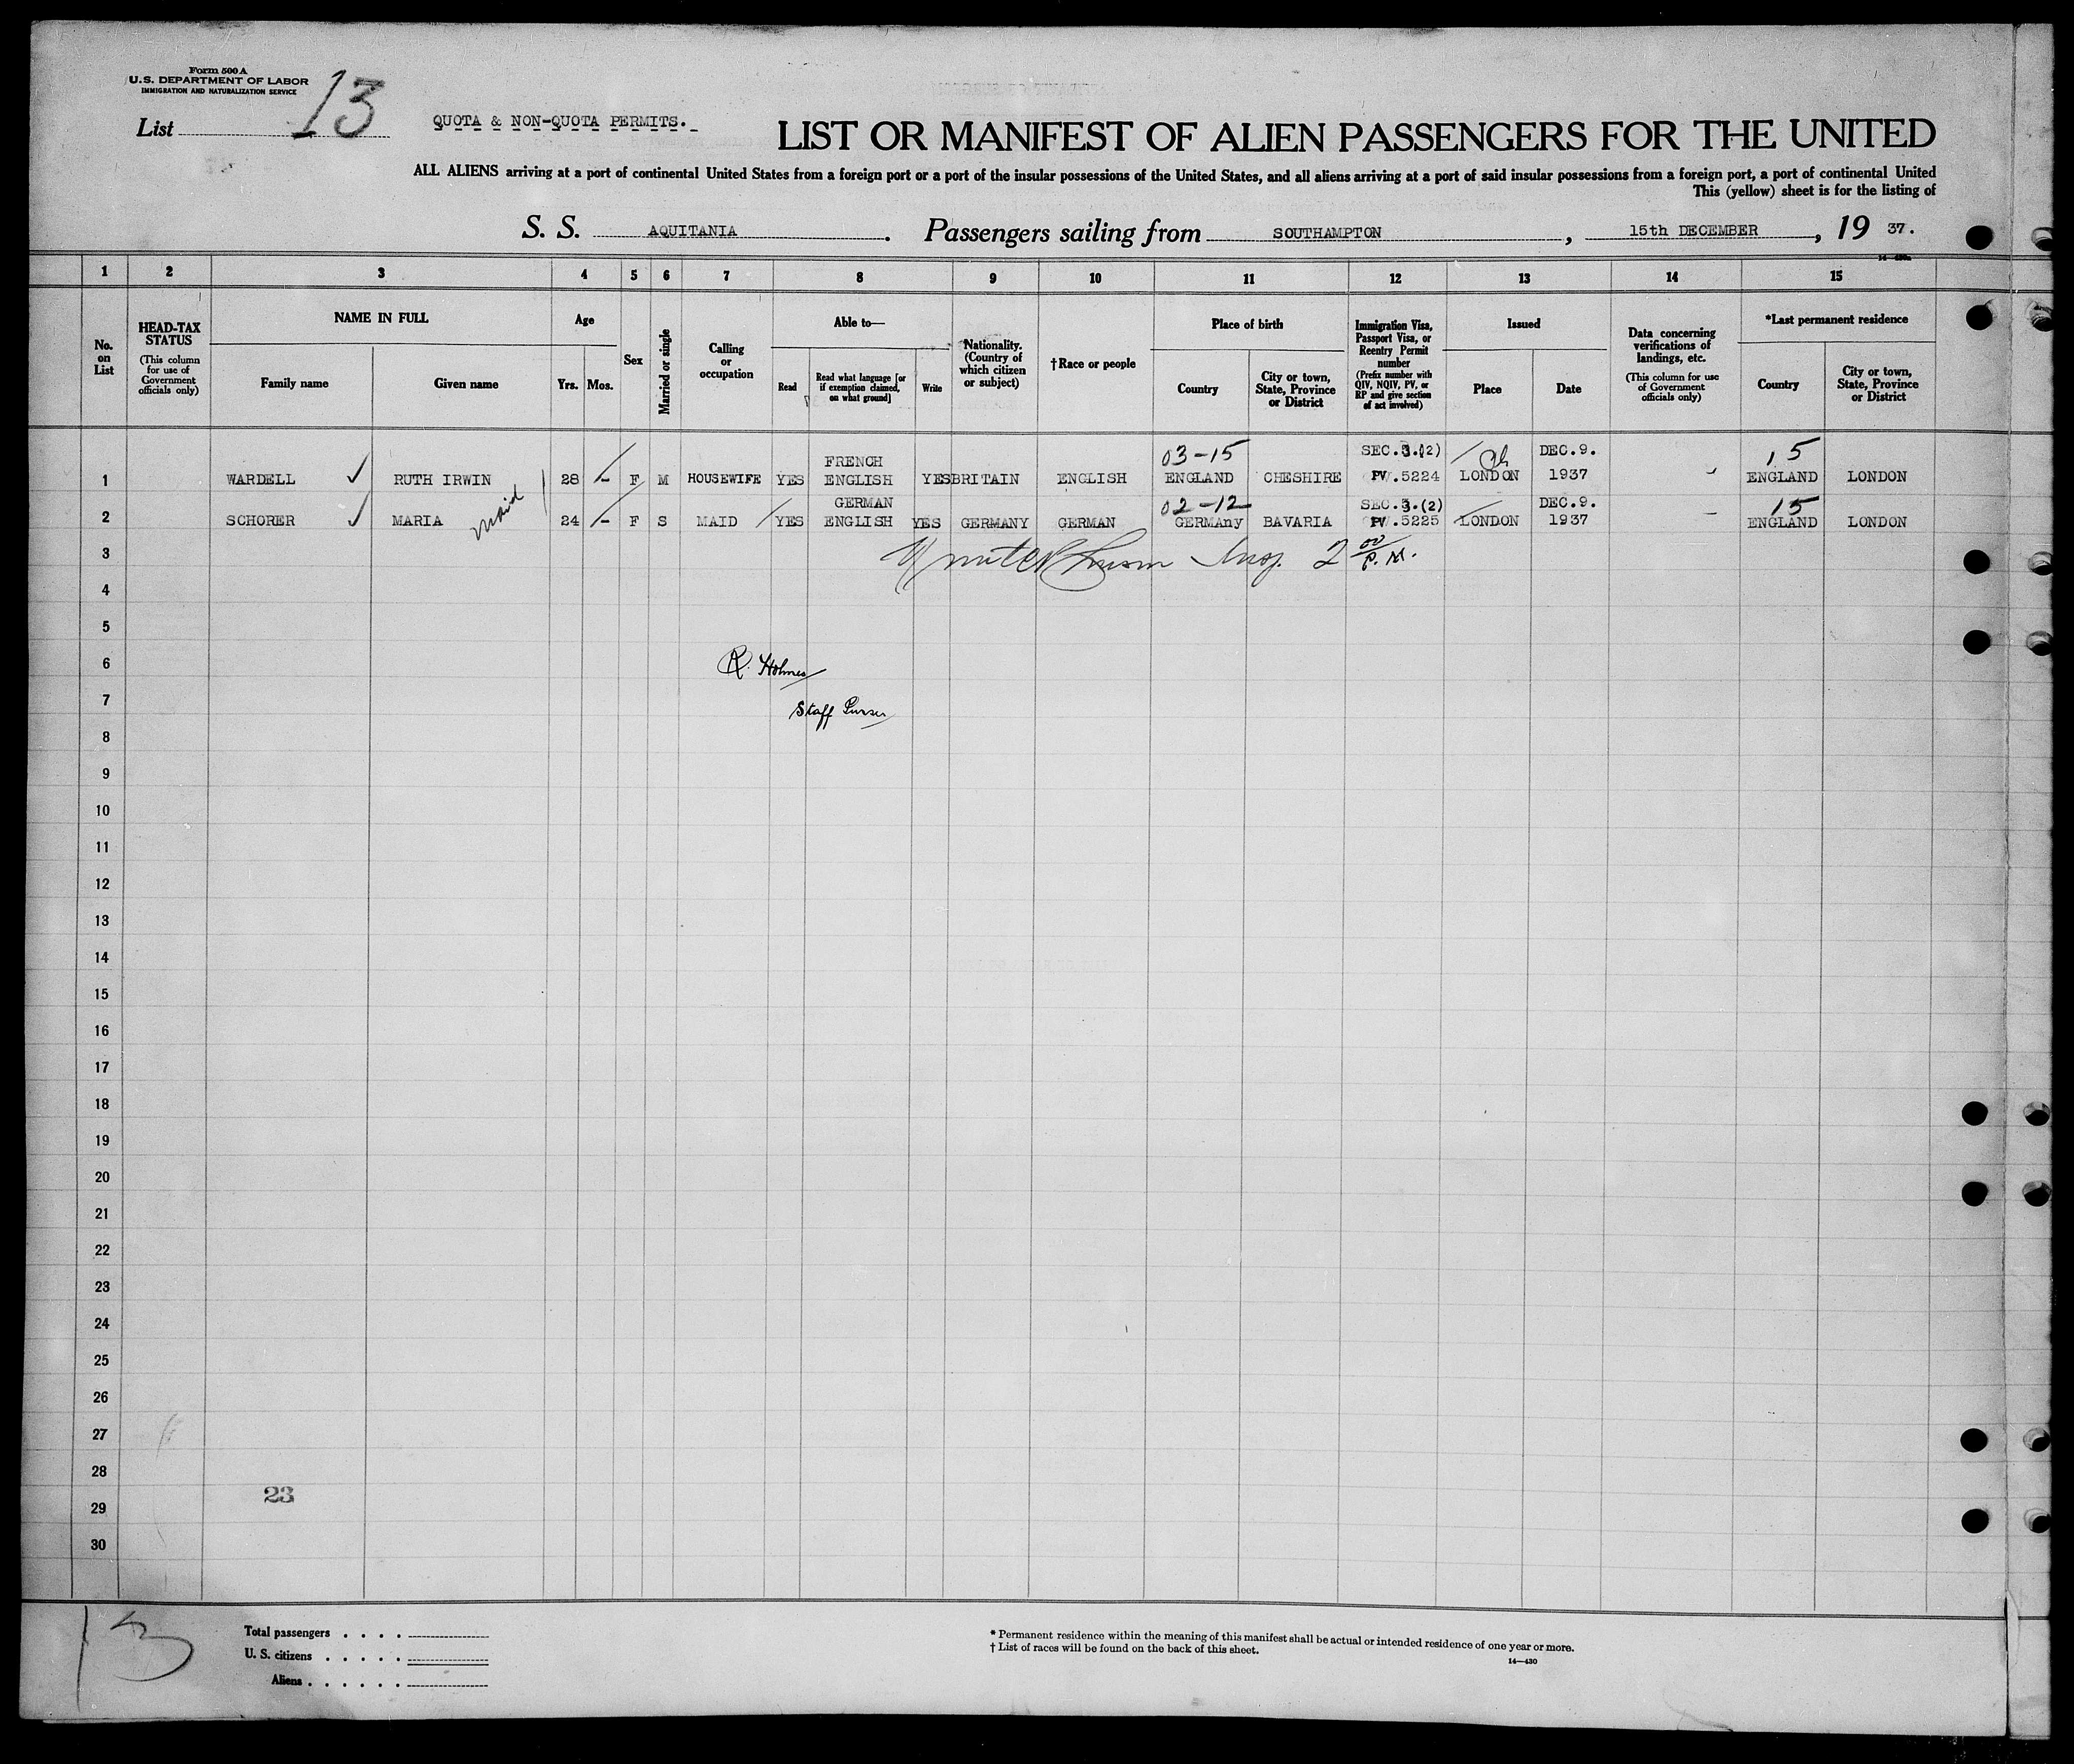 Form 500 A
U.S. DEPARTMENT OF LABOR
IMMIGRATION AND NATURALIZATION SERVICE
List 13
QUOTA & NON-QUOTA PERMITS.
LIST OR MANIFEST OF ALIEN PASSENGERS FOR THE UNITED
ALL ALIENS arriving at a port of continental United States from a foreign port or a port of the insular possessions of the United States, and all aliens arriving at a port of said insular possessions from a foreign port, a port of continental United
This (yellow) sheet is for the listing of
S. S. AQUITANIA. Passengers sailing from SOUTHAMPTON, 15th DECEMBER, 19 37.
1 2 3 4 5 6 7 8 9 10 11 12 13 14 15
No. on List
HEAD-TAX STATUS
(This column for use of Government officials only)
NAME IN FULL
Family name
Given name
Age
Yrs. Mos.
Sex
Married or single
Calling or occupation
Able to—
Read
Read what language [or if exemption claimed, on what ground]
Write
Nationality. (Country of which citizen or subject)
†Race or people
Place of birth
Country
City or town, State, Province or District
Immigration Visa, Passport Visa, or Reentry Permit number
(Prefix number with QIV, NQIV, PV, or RP and give section of act involved)
Issued
Place
Date
Data concerning verifications of landings, etc.
(This column for use of Government officials only)
*Last permanent residence
Country
City or town, State, Province or District
FRENCH 03-15 SEC.3.(2) DEC.9. 15
1 WARDELL ✓ RUTH IRWIN 28 - F M HOUSEWIFE YES ENGLISH YES BRITAIN ENGLISH ENGLAND CHESHIRE PV.5224 LONDON 1937 ENGLAND LONDON
GERMAN 02-12 SEC.3.(2) DEC.9. 15
2 SCHORER ✓ MARIA maid 24 - F S MAID YES ENGLISH YES GERMANY GERMAN GERMANy BAVARIA PV.5225 LONDON 1937 ENGLAND LONDON
3 Insp. 2 00 P.M.
4
5
6 R. Holmes
7 Staff Purser
8
9
10
11
12
13
14
15
16
17
18
19
20
21
22
23
24
25
26
27
28
23
29
30
13
Total passengers
U. S. citizens
Aliens
* Permanent residence within the meaning of this manifest shall be actual or intended residence of one year or more.
† List of races will be found on the back of this sheet.
14—430